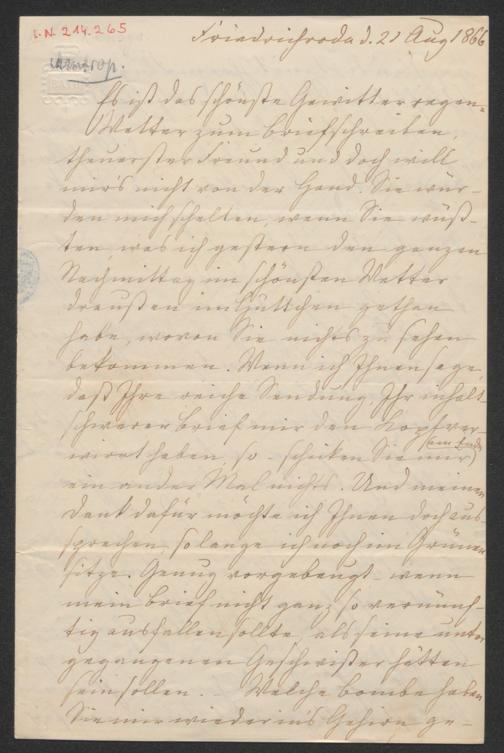 I.N. 214.265
Friedrichroda d. 21 Aug 1866
Es ist das schönste Gewitterregen-
Wetter zum Briefschreiben,
theuerster Freund und doch will
mir's nicht von der Hand. Sie wür-
den mich schelten, wenn Sie wüß-
ten, was ich gestern den ganzen
Nachmittag im schönsten Wetter
draußen im Hüttchen gethan
habe, wovon Sie nichts zu sehen
bekommen. Wenn ich Ihnen sage,
daß Ihre reiche Sendung, Ihr inhalt-
schwerer Brief mir den Kopf ver-
wirrt haben, so - schicken Sie mir (am Ende)
ein ander Mal nichts. Und meinen
Dank dafür möchte ich Ihnen doch aus-
sprechen, solange ich noch im Grünen
sitze. Genug vorgebeugt wenn
mein Brief nicht ganz so vernünf-
tig ausfallen sollte, als seine unter-
gegangenen Geschwister hätten
sein sollen. - Welche Bombe haben
Sie mir wieder ins Gehirn ge-